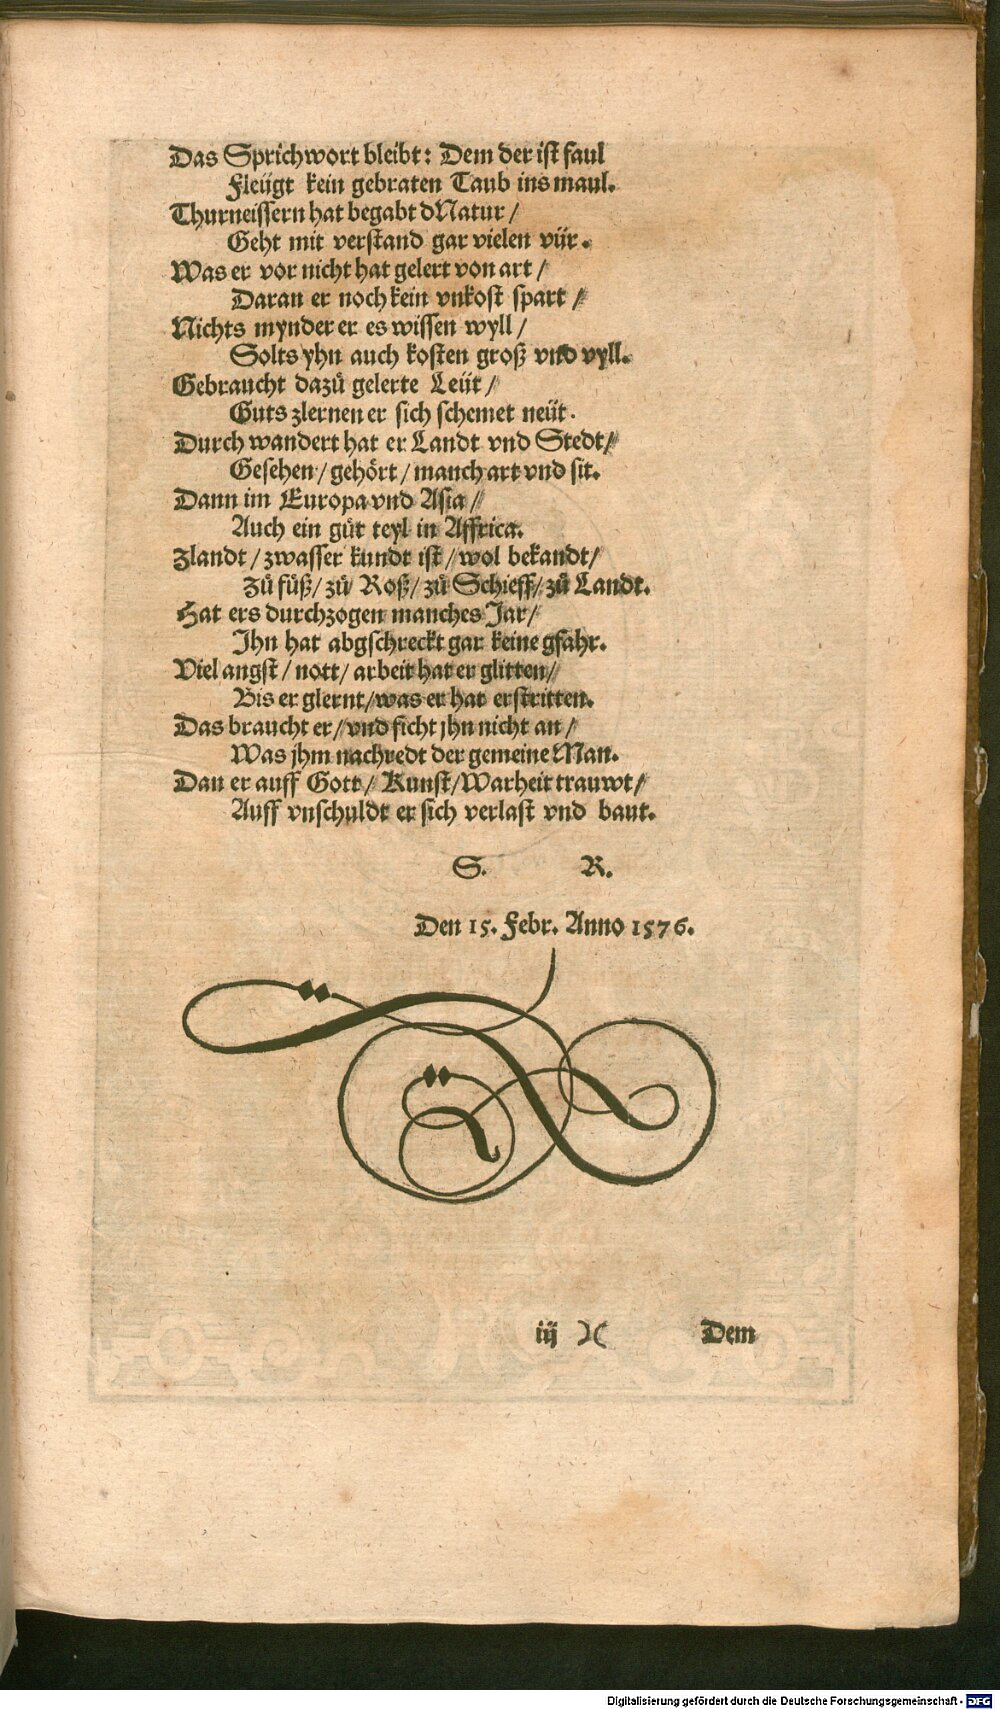 Das Sprichwort bleibt: Dem der ist faul
Fleügt kein gebraten Taub ins maul.
Thurneissern hat begabt dNatur /
Geht mit verstand gar vielen vür.
Was er vor nicht hat gelert von art /
Daran er noch kein vnkost spart /
Nichts mynder er es wissen wyll /
Solts yhn auch kosten groß vnd vyll.
Gebraucht dazů gelerte Leüt /
Guts zlernen er sich schemet neüt.
Durch wandert hat er Landt vnd Stedt /
Gesehen / gehört / manch art vnd sit.
Dann im Europa vnd Asia /
Auch ein gůt teyl in Affrica.
Zlandt / zwasser kundt ist / wol bekandt /
Zů fůß / zů Roß / zů Schieff / zů Landt.
Hat ers durchzogen manches Jar /
Ihn hat abgschreckt gar keine gfahr.
Viel angst / nott / arbeit hat er glitten /
Bis er glernt / was er hat erstritten.
Das braucht er / vnd ficht jhn nicht an /
Was jhm nachredt der gemeine Man.
Dan er auff Gott / Kunst / Warheit trauwt /
Auff vnschuldt er sich verlast vnd baut.
S. R.
Den 15. Febr. Anno 1576.
iij )( Dem
Digitalisierung gefördert durch die Deutsche Forschungsgemeinschaft - DFG